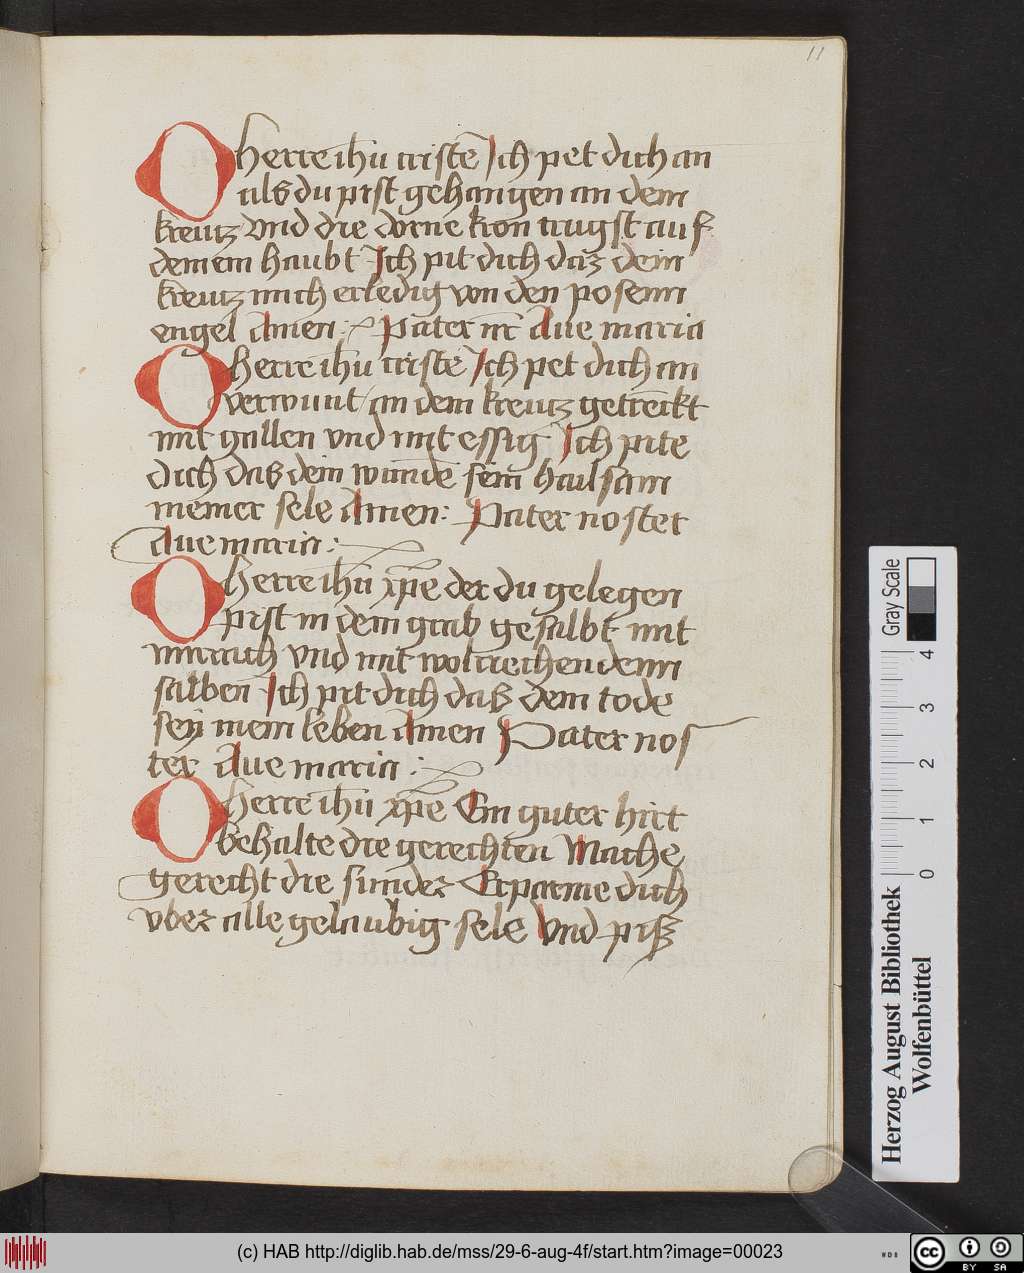 11
O herre ihū criste Ich pet dich an
als du pist gehangen an dem
kreutz vnd die dorne kron trugst auf
deinem haubt Ich pit dich daz dein
kreutz mich erledig von den posenn
engel Amen : Pater nr̄ Aue maria
O herre ihū criste Ich pet dich an
verwunt an dem kreutz getrēckt
mit gallen vnd mit essig Ich pite
dich daß dein wundē sein hailsam
meiner sele Amen : Pater noster
Aue maria :
O herre ihū xp̄e der du gelegen
pist in dem grab gesalbt mit
mirrach vnd mit wolriechendenn
salben Ich pit dich daß dein tode
sey mein leben Amen Pater nos
ter Aue maria :
O herre ihū xp̄e Ein guter hirt
behalte die gerechten Mache
gerecht die sunder Erparme dich
vber alle gelaubig sele Vnd piß
Gray Scale
0 1 2 3 4
Herzog August Bibliothek
Wolfenbüttel
(c) HAB http://diglib.hab.de/mss/29-6-aug-4f/start.htm?image=00023
WDB
cc BY SA